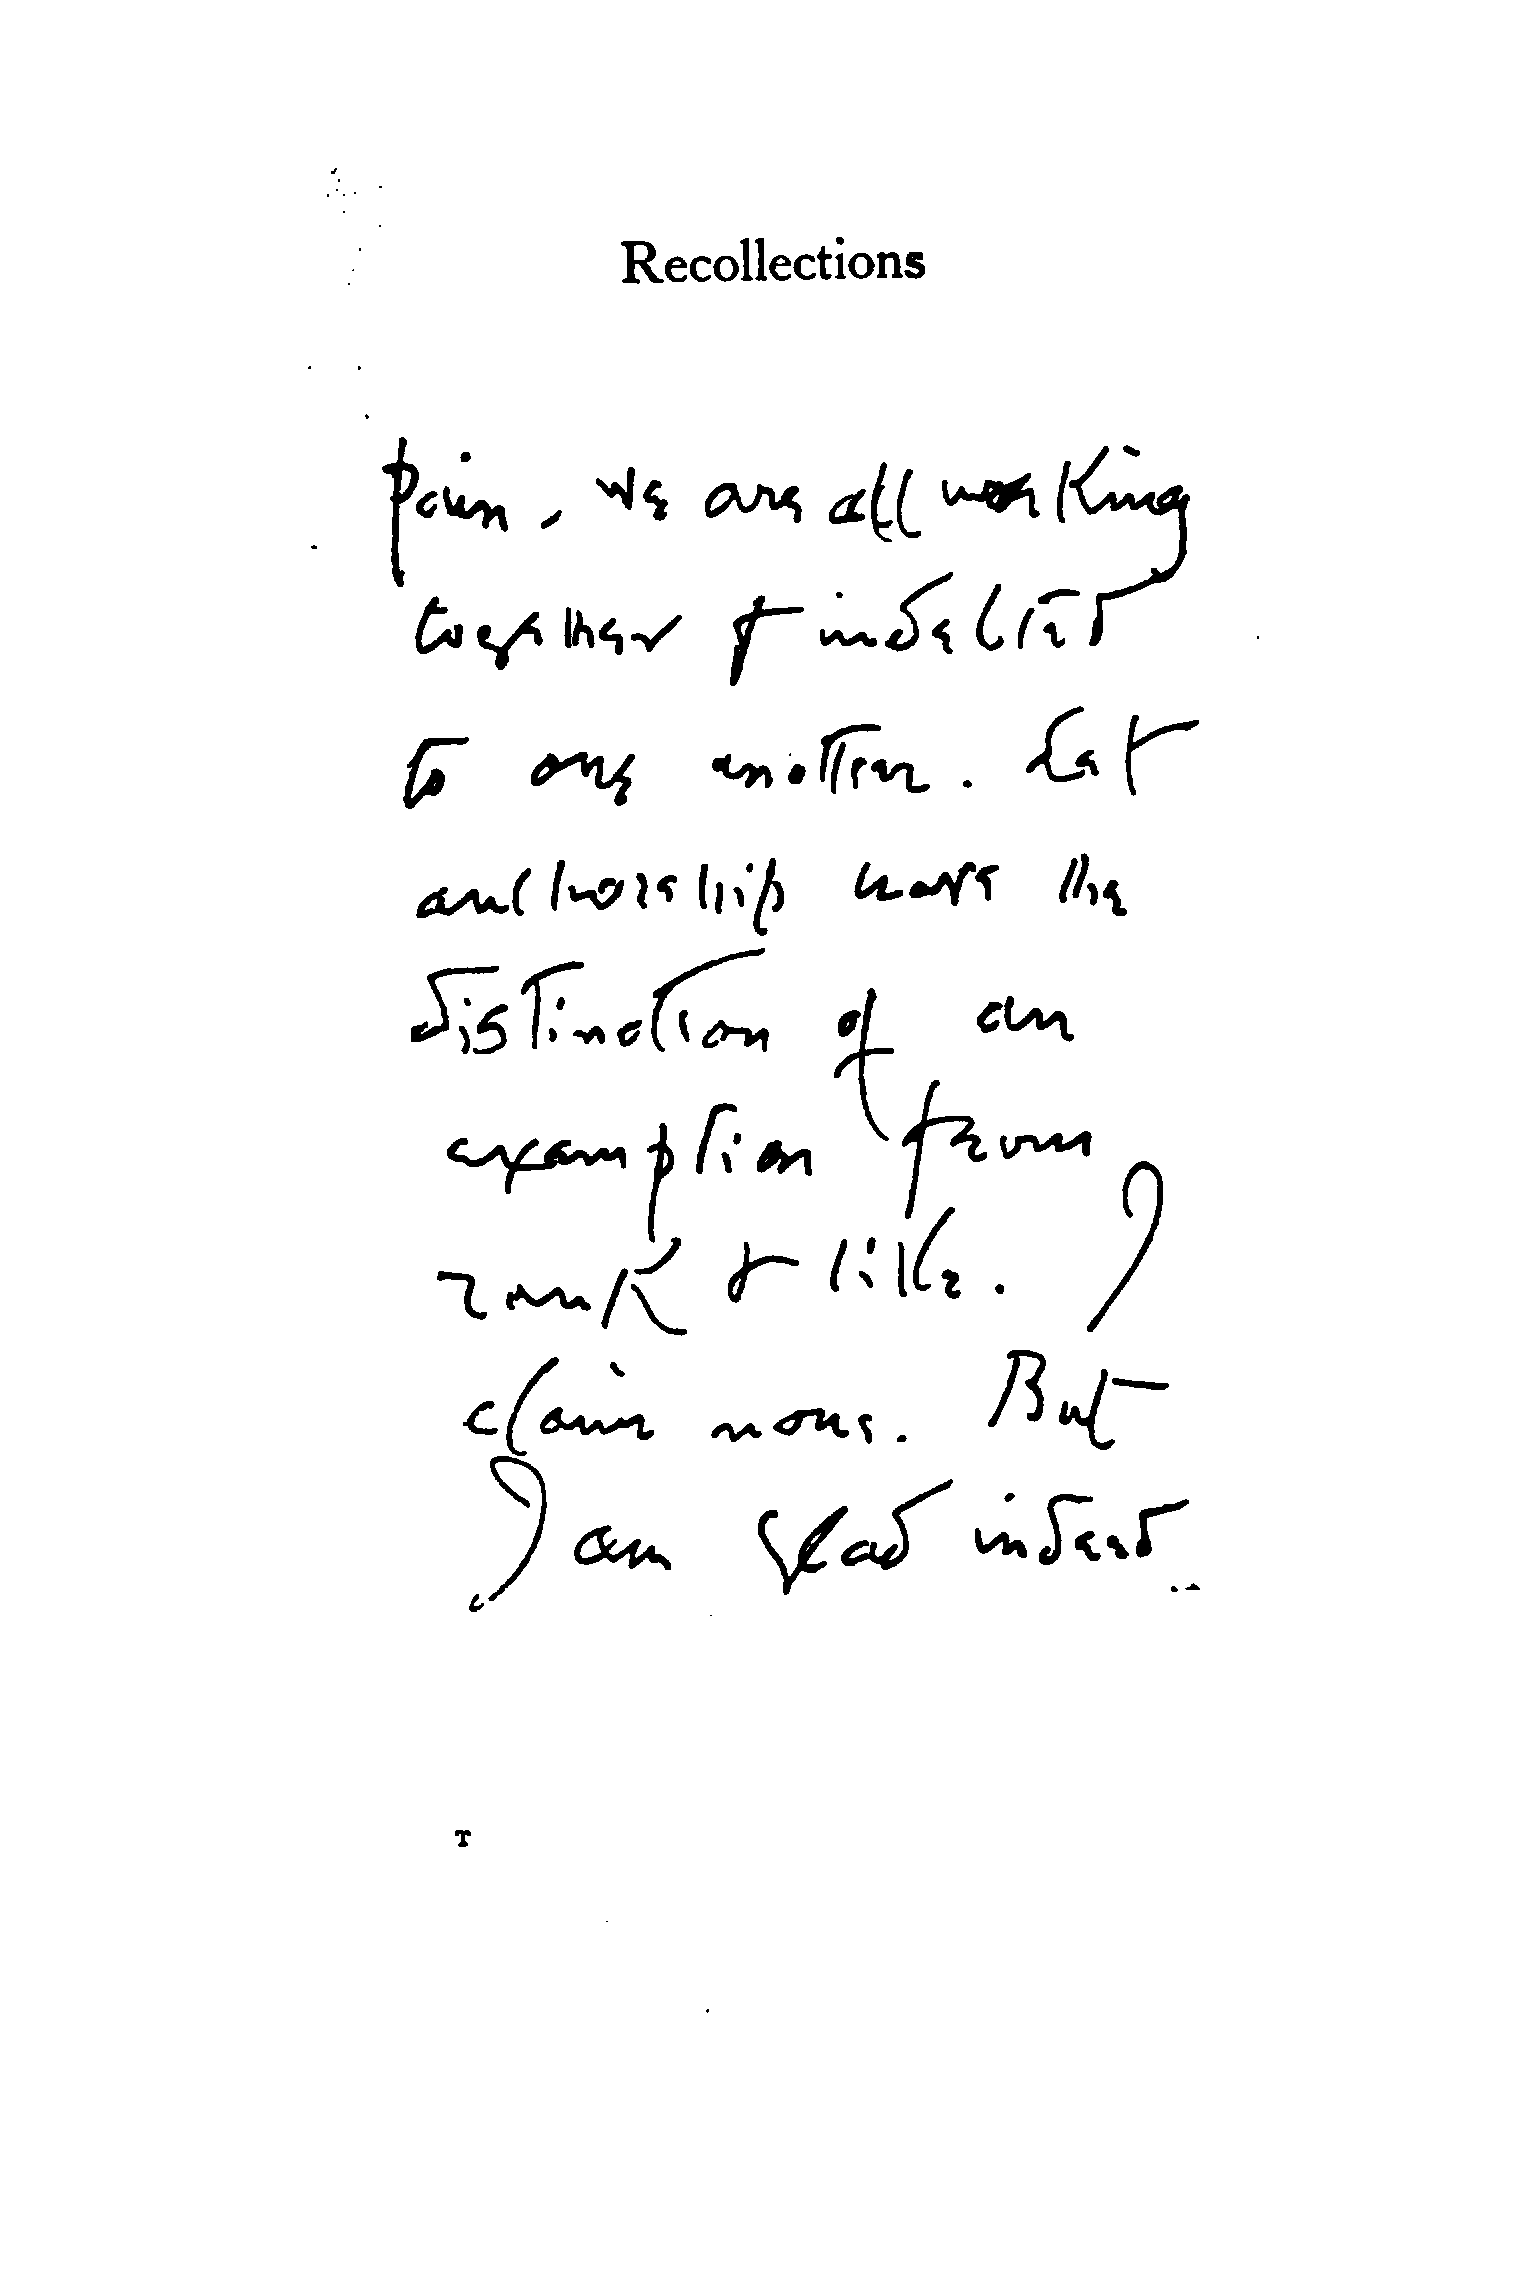 Recollections
pain, we are all working
together & indebted
to one another. Let
authorship have the
distinction of an
exemption from
rank & like. I
claim none. But
I am glad indeed
T